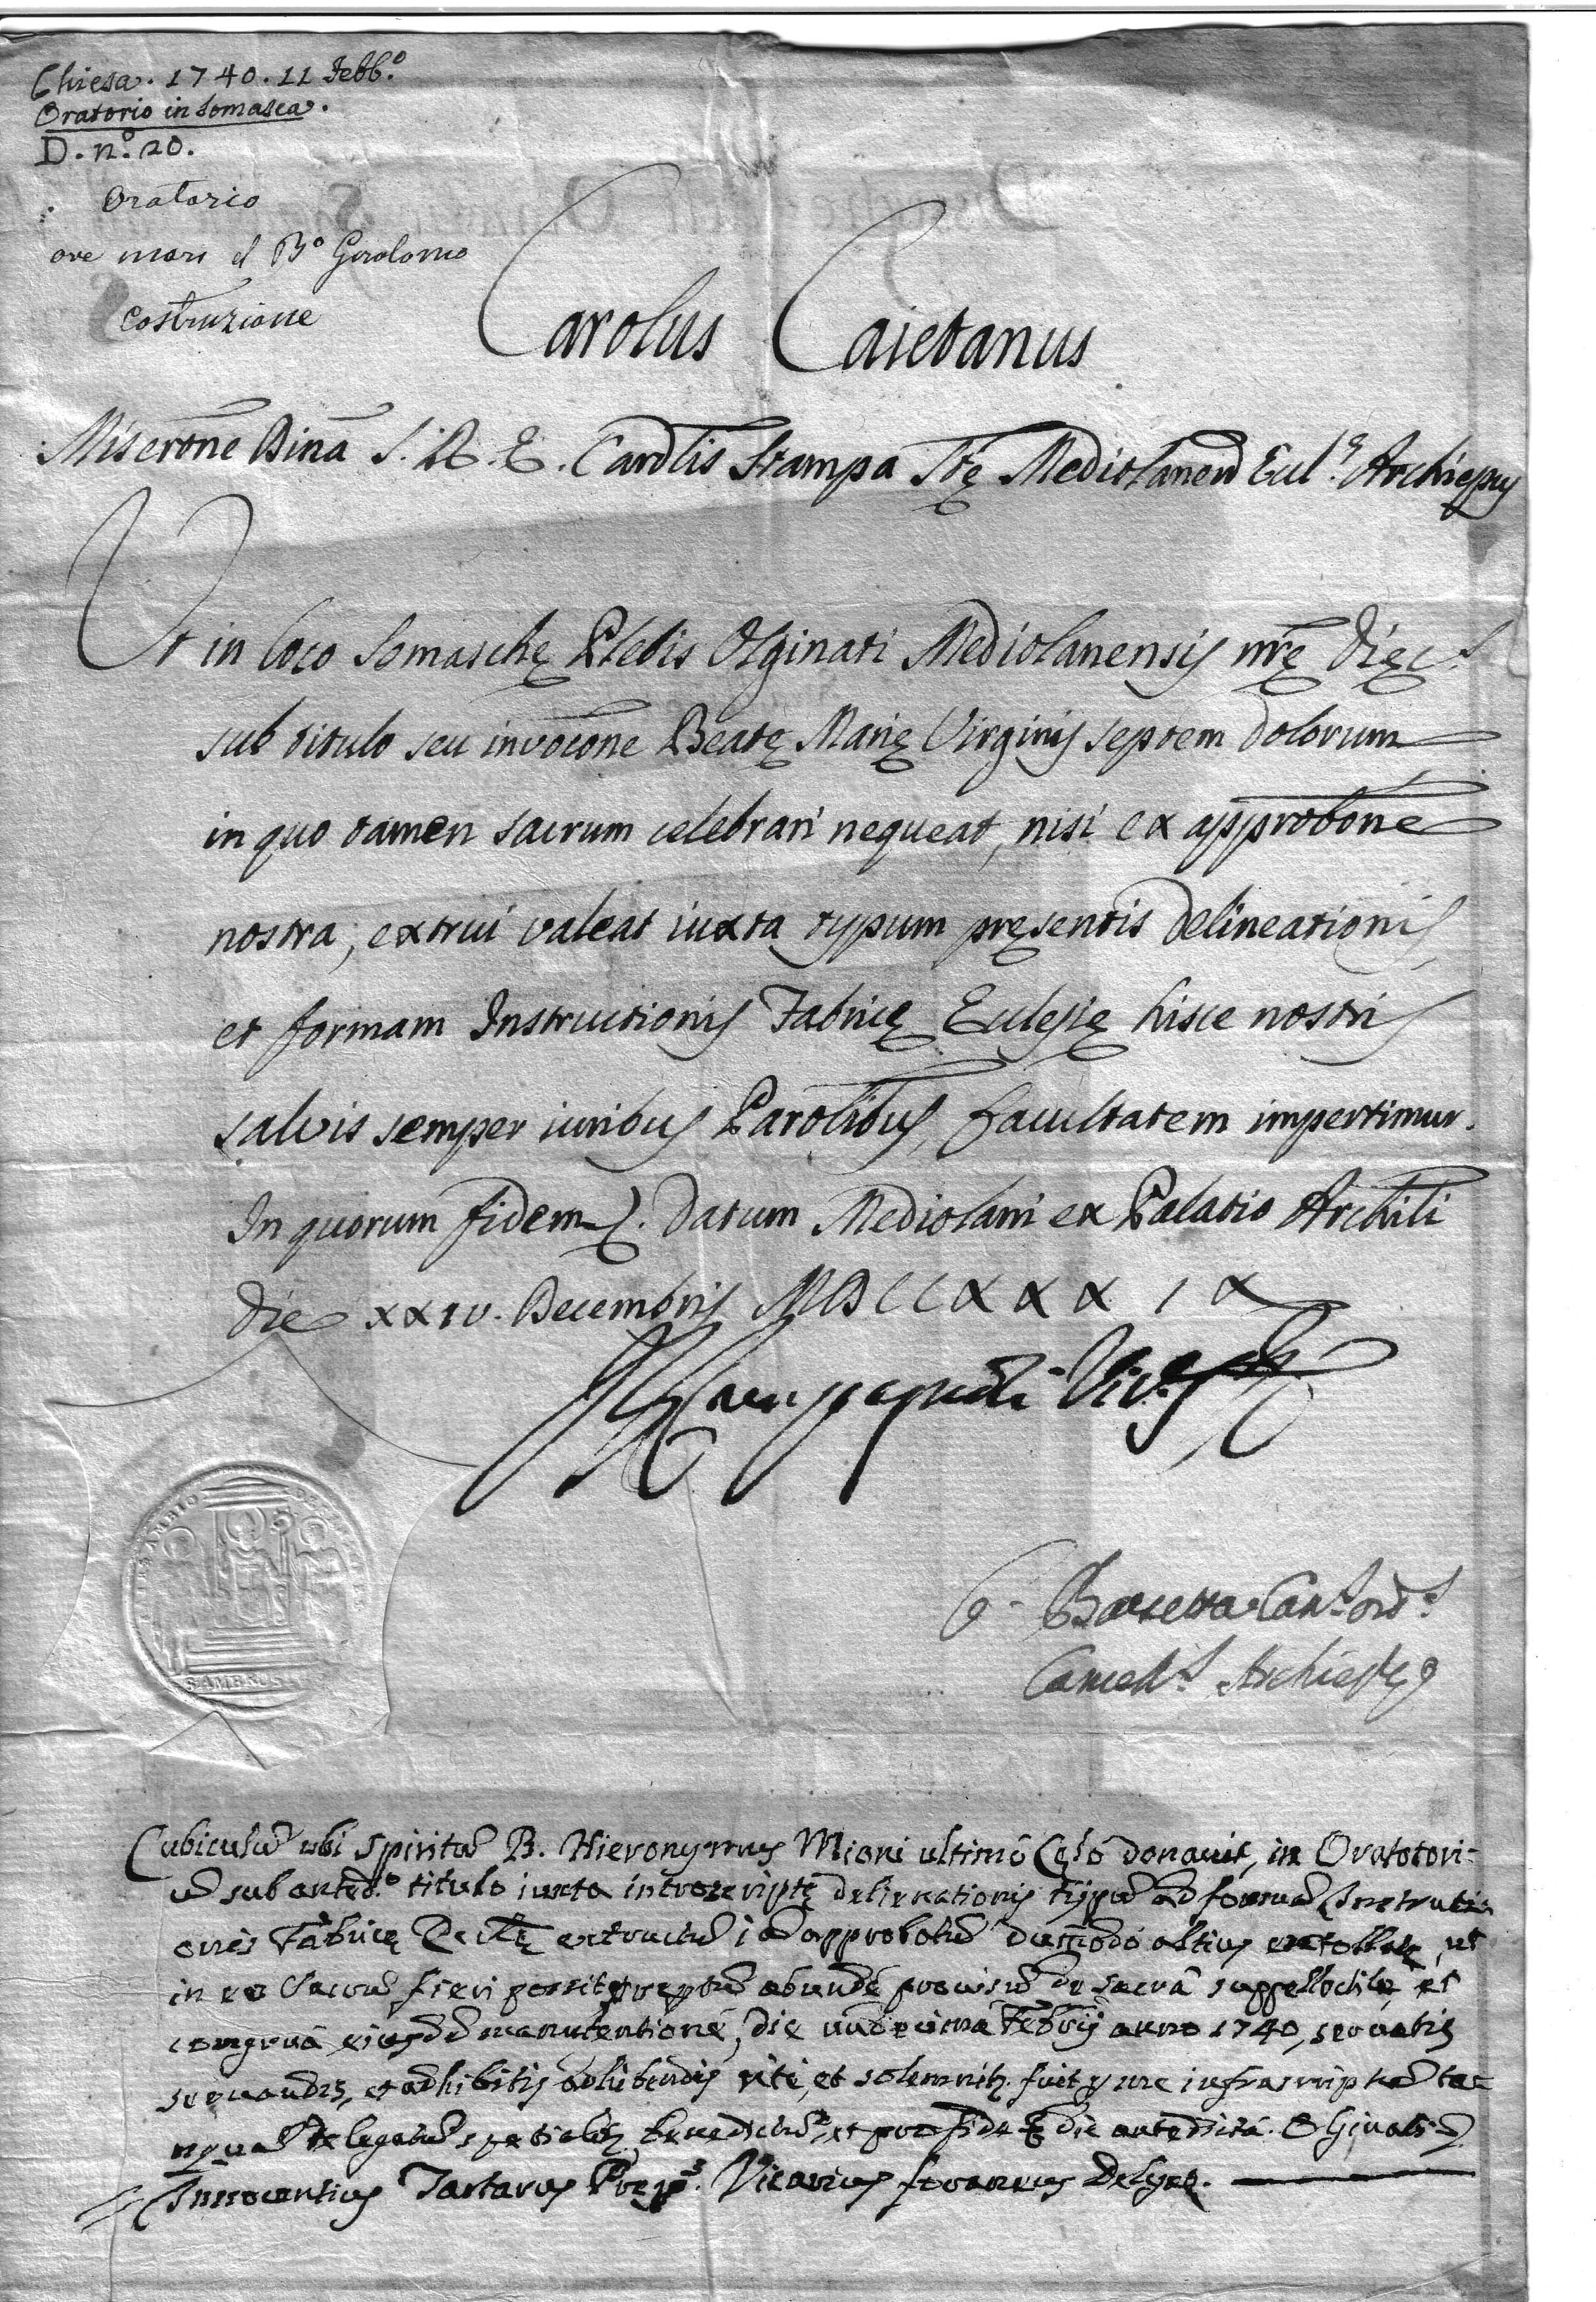 Chiesa. 1740. 11 Febb.º
Oratorio in Somasca.
D. n.º 20.
Oratorio
ove morì il Bº Girolamo
costruzione
Carolus Caietanus
Miserõne Dinã S. R. E. Cardlis Stampa Stę Mediolanen Eccl.ę Archiepus
Ut in loco Somaschę Plebis Olginati Mediolanensis nrę Dięc.s
sub titulo seu invocõne Beatę Marię Virginis septem Dolorum
in quo tamen sacrum celebrari nequeat, nisi ex approbõne
nostra, extrui valeat iuxta typum pręsentis delineationis,
et formam Instructionis Fabricę Ecclesię hisce nostris
salvis semper iuribus Parolibus, facultatem impertimur.
In quorum fidem. Datum Mediolani ex Palatio Archili
die xxiv. Decembris MDCCXXXIX
Vic.s
Can.s ord.s
Cancell.s Archiepli
S. AMBROS
Cubiculũ ubi spiritũ B. Hieronymus Miani ultimò Cęlo donavit, in Oratotori-
ũ sub anted.º titulo iuxta introscriptę delineationis typũ ad formã Instructi
onis Fabricę Eccłę extructũ iã approbatũ dummodo altius extollatur, ut
in eo Sacrũ fieri possit, abundè provisũ de sacrâ suppellectile, et
congruâ eiusdẽ manutentione, die undecima Febrij anno 1740, servatis
servandis, et adhibitis adhibendis ritè, et solemnitʒ fuit p me infrascriptũ ta-
nquã delegatũ spetialitʒ benedictũ, et pro fide die antedictâ. Olginati
Innocentius Tartarus Prep.s Vicarius foraneus Deleg.